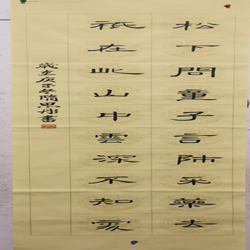 松下問童子言師采藥去
祇在此山中雲深不知處
歲在庚子冬